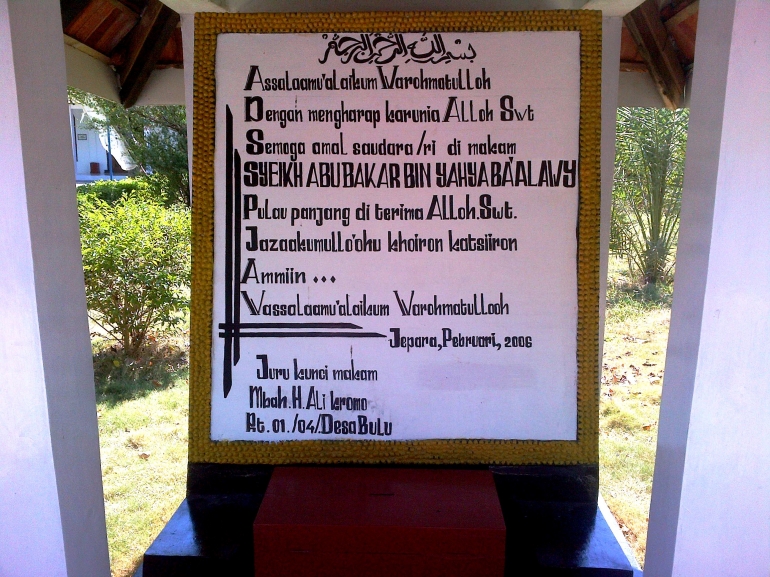 بسم الله الرحمن الرحيم
Assalaamu'alaikum Warohmatulloh
Dengan mengharap karunia ALLoh Swt
Semoga amal saudara/ri di makam
SYEIKH ABU BAKAR BIN YAHYA BA'ALAWY
Pulau panjang di terima ALLoh.Swt.
Jazaakumullo'ohu khoiron katsiiron
Ammiin ...
Wassalaamu'alaikum Warohmatullooh
Jepara, Pebruari, 2006
Juru kunci makam
Mbah.H.ALi kromo
Rt.01./04/Desa BuLu